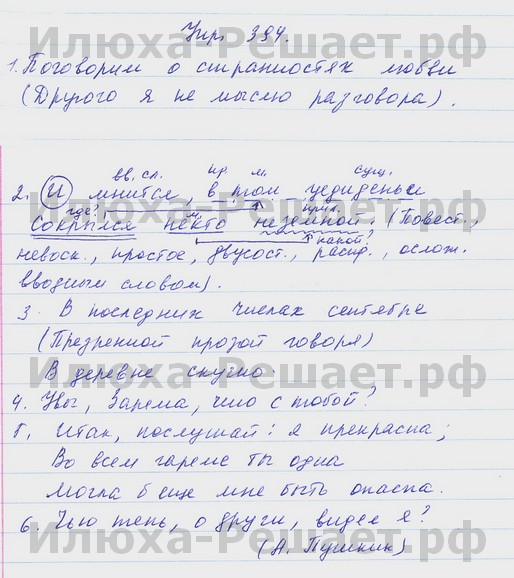 Упр. 394.
Илюха-Решает.рф
1. Поговорим о странностях любви
(Другого я не мыслю разговора).
вв. сл. пр. м. сущ.
2. И мнится, в том уединеньи
где? м. прил.
Сокрылся некто неземной. (Повест.,
какой?
невоск., простое, двусост., распр., ослож.
вводным словом).
Илюха-Решает.рф
3. В последних числах сентября
(Презренной прозой говоря)
В деревне скучно.
Илюха-Решает.рф
4. Увы, Зарема, что с тобой?
5. Итак, послушай: я прекрасна;
Во всем гареме ты одна
Могла б еще мне быть опасна.
6. Чью тень, о други, видел я?
Илюха-Решает.рф
(А. Пушкин)